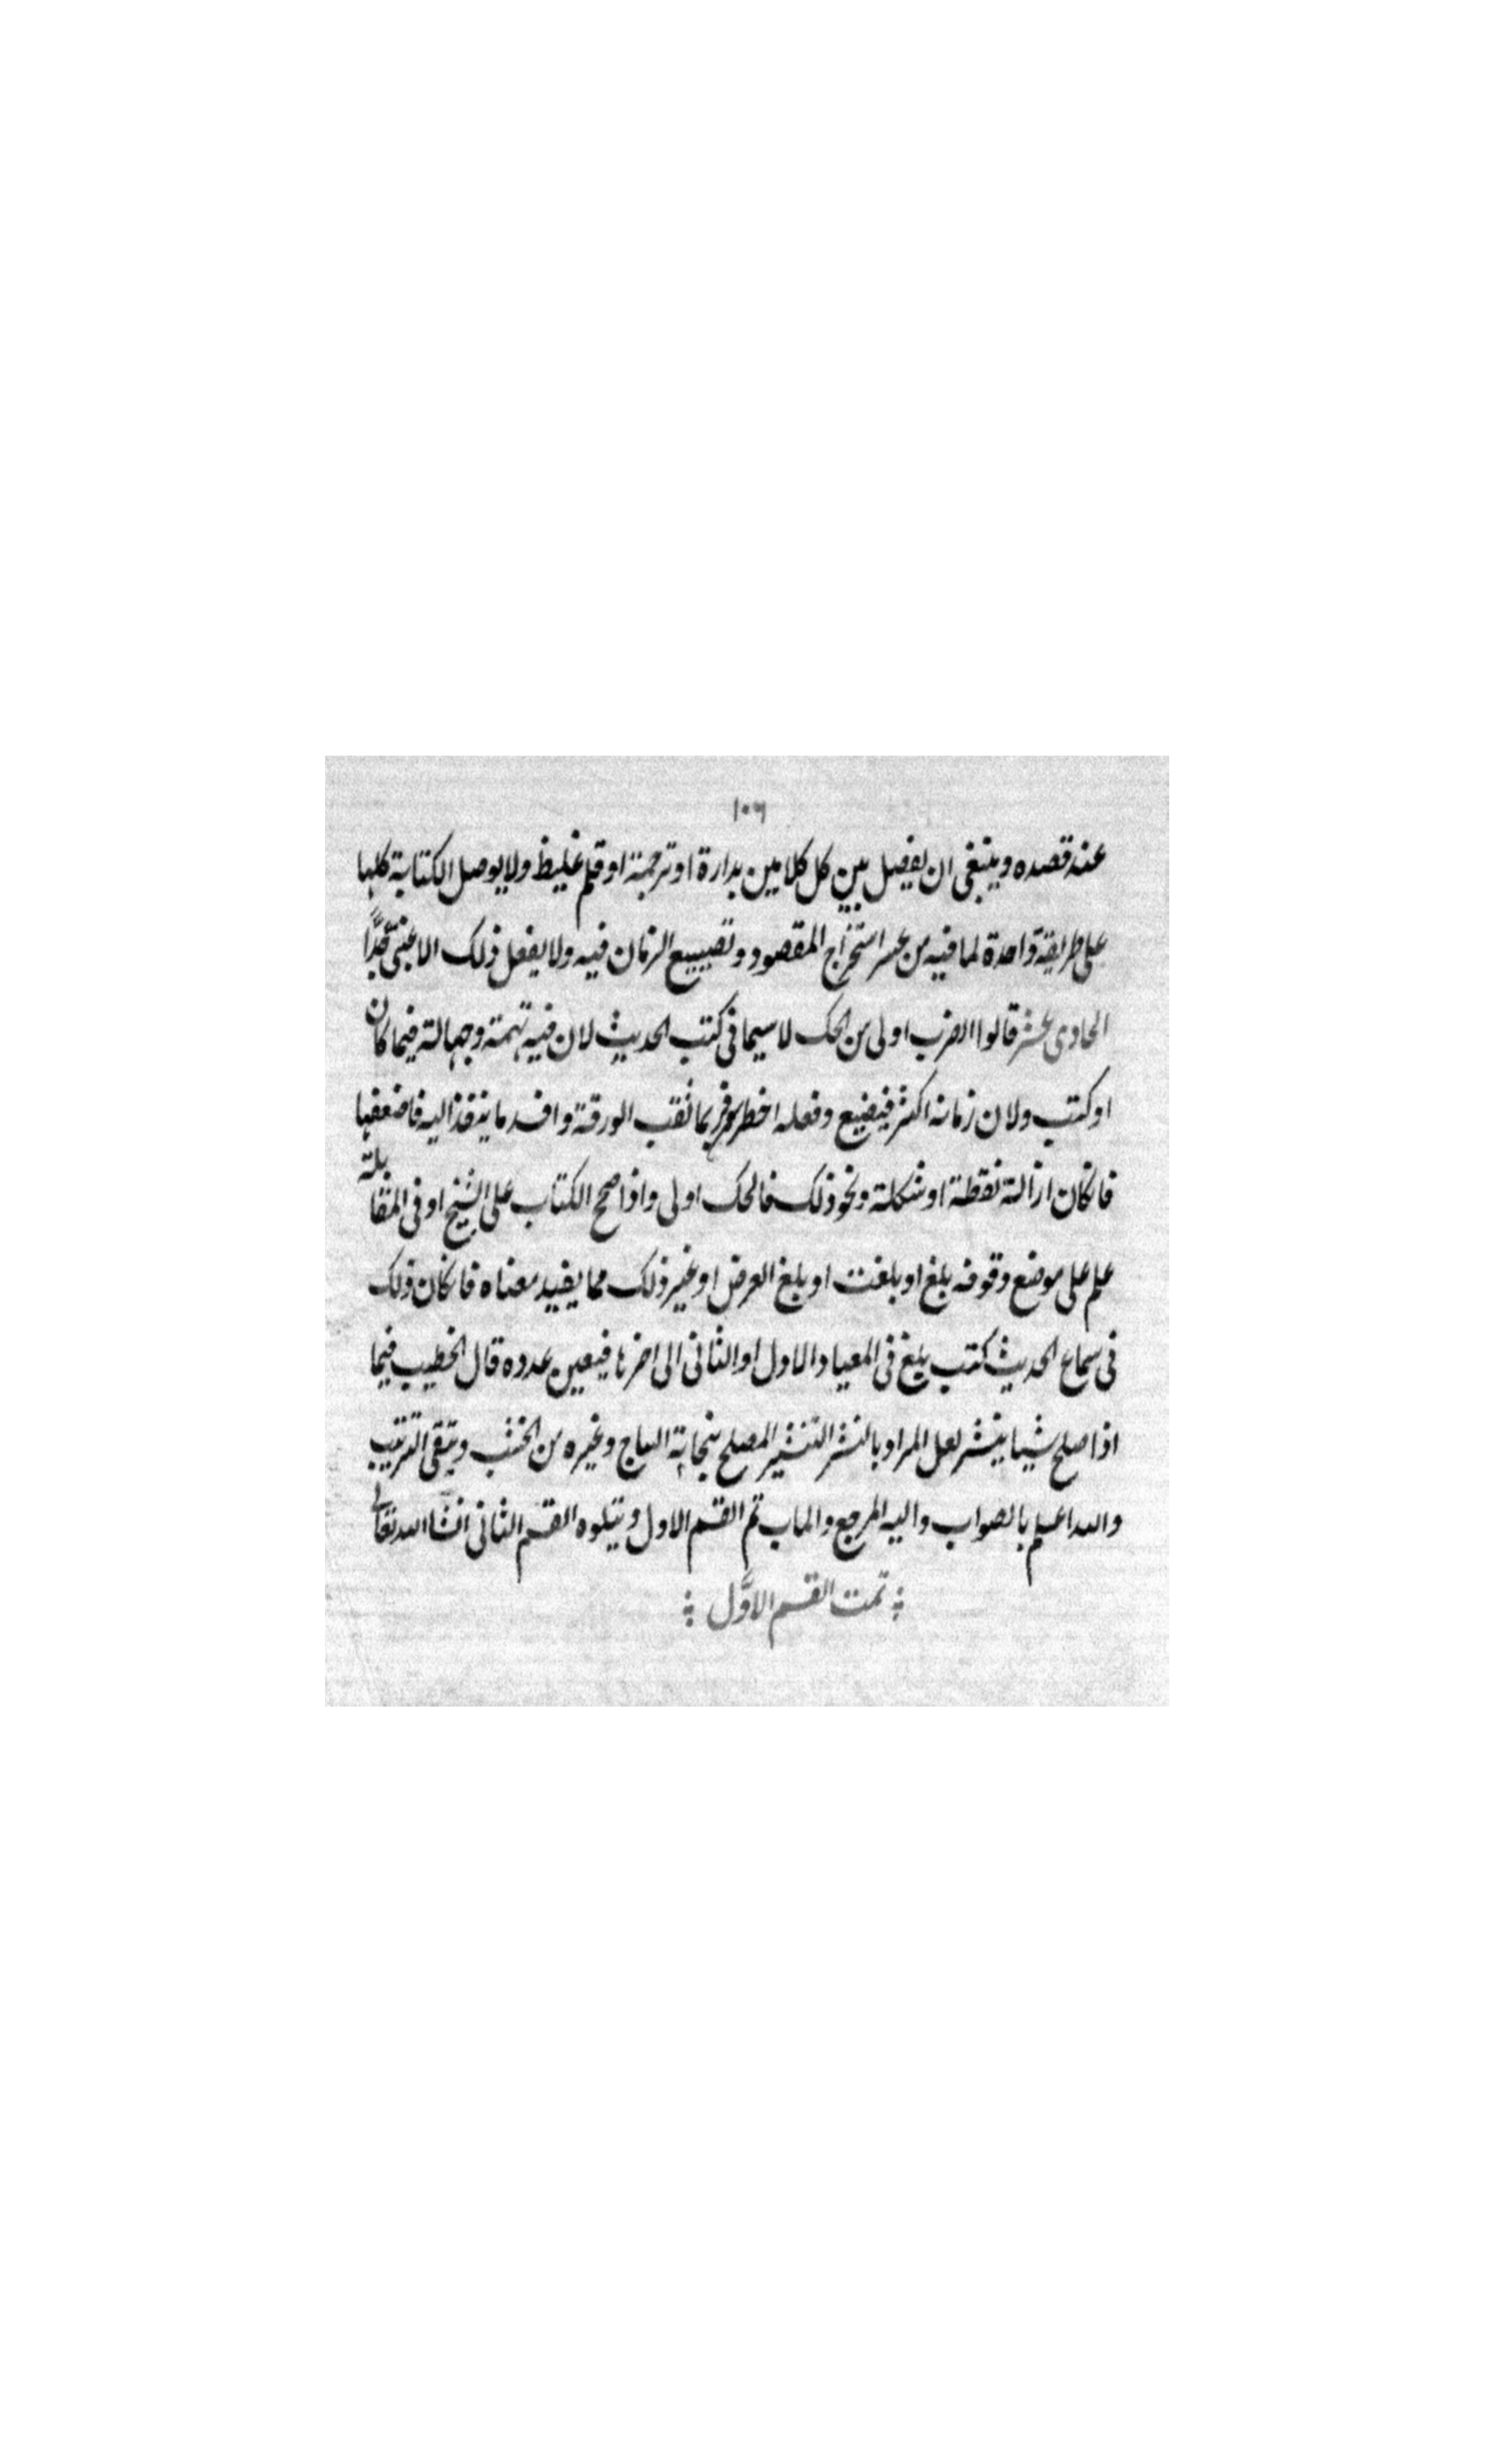 ١٠٦
عند قصده وينبغى ان يفصل بين كل كلامين بدارة او ترجمة او قلم غليظ ولا يوصل الكتابة كلها
على طريقة واحدة لما فيه من عسر استخراج المقصود وتضييع الزمان فيه ولا يفعل ذلك الا غبى جدًّا
الحادى عشر قالوا الضرب اولى من الحك لا سيما فى كتب الحديث لان فيه تهمة وجهالة فيما كان
او كتب ولان زمانه اكثر فيضيع وفعله اخطر فربما ثقب الورقة وافسد ما ينفذ اليه فاضعفها
فان كان ازالة نقطة او شكلة ونحو ذلك فالحك اولى واذا صحح الكتاب على الشيخ او فى المقابلة
علم على موضع وقوفه بلغ او بلغت او بلغ العرض او غير ذلك مما يفيد معناه فان كان ذلك
فى سماع الحديث كتب بلغ فى الميعاد الاول او الثانى الى اخرها فيعين عدده قال الخطيب فيما
اذا اصلح شيئا ينشر لعل المراد بالنشر التنشير المصلح بنحاتة الساج وغيره من الخشب ويتقى التتريب
والله اعلم بالصواب واليه المرجع والماب تم القسم الاول ويتلوه القسم الثانى انشا الله تعالى
تمت القسم الاوَّل